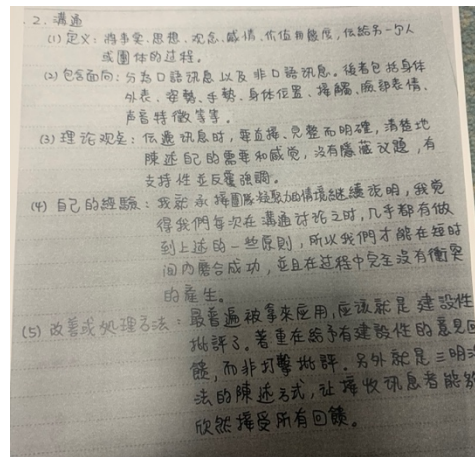 2. 溝通
(1) 定义：將事實、思想、观念、感情、价值和態度，伝給另一个人
或團体的过程。
(2) 包含面向：分為口語訊息以及非口語訊息。後者包括身体
外表、姿勢、手勢、身体位置、接觸、臉部表情、
声音特徵等等。
(3) 理论观点：伝遞訊息时，要直接、完整而明確，清楚地
陳述自己的需要和感觉，沒有隱藏议題，有
支持性並反覆強調。
(4) 自己的經驗：我就承接團隊凝聚力的情境継續說明，我覚
得我們每次在溝通讨论之时，几乎都有做
到上述的一些原則，所以我們才能在短时
间内磨合成功，並且在过程中完全沒有衝突
的產生。
(5) 改善或処理方法：最普遍被拿來应用，应該就是建設性
批評了。著重在給予有建設性的意見回
饋，而非打擊批評。另外就是三明治
法的陳述方式，让接收訊息者能夠
欣然接受所有回饋。